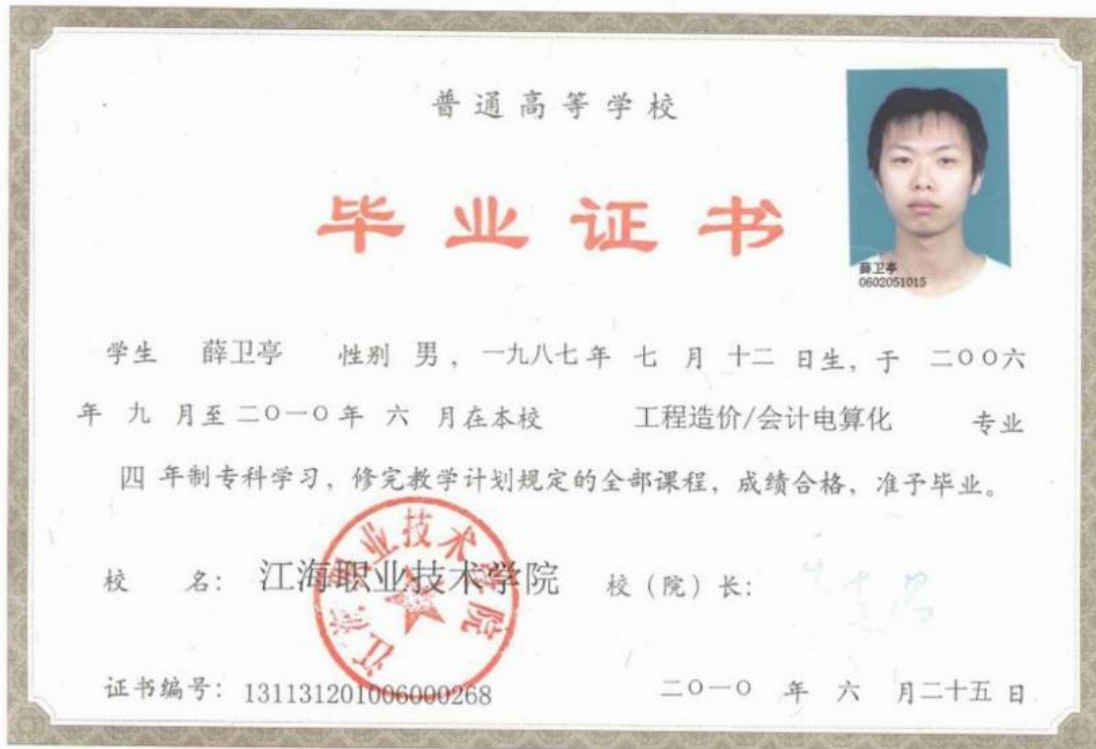 普通高等学校
毕业证书
薛卫亭
0602051015
学生 薛卫亭 性别 男，一九八七年 七 月 十二 日生，于 二〇〇六
年 九 月至二〇一〇年 六 月在本校 工程造价/会计电算化 专业
四 年制专科学习，修完教学计划规定的全部课程，成绩合格，准予毕业。
校 名：江海职业技术学院 校（院）长：
江海职业技术学院
证书编号：131131201006000268 二〇一〇 年 六 月二十五 日